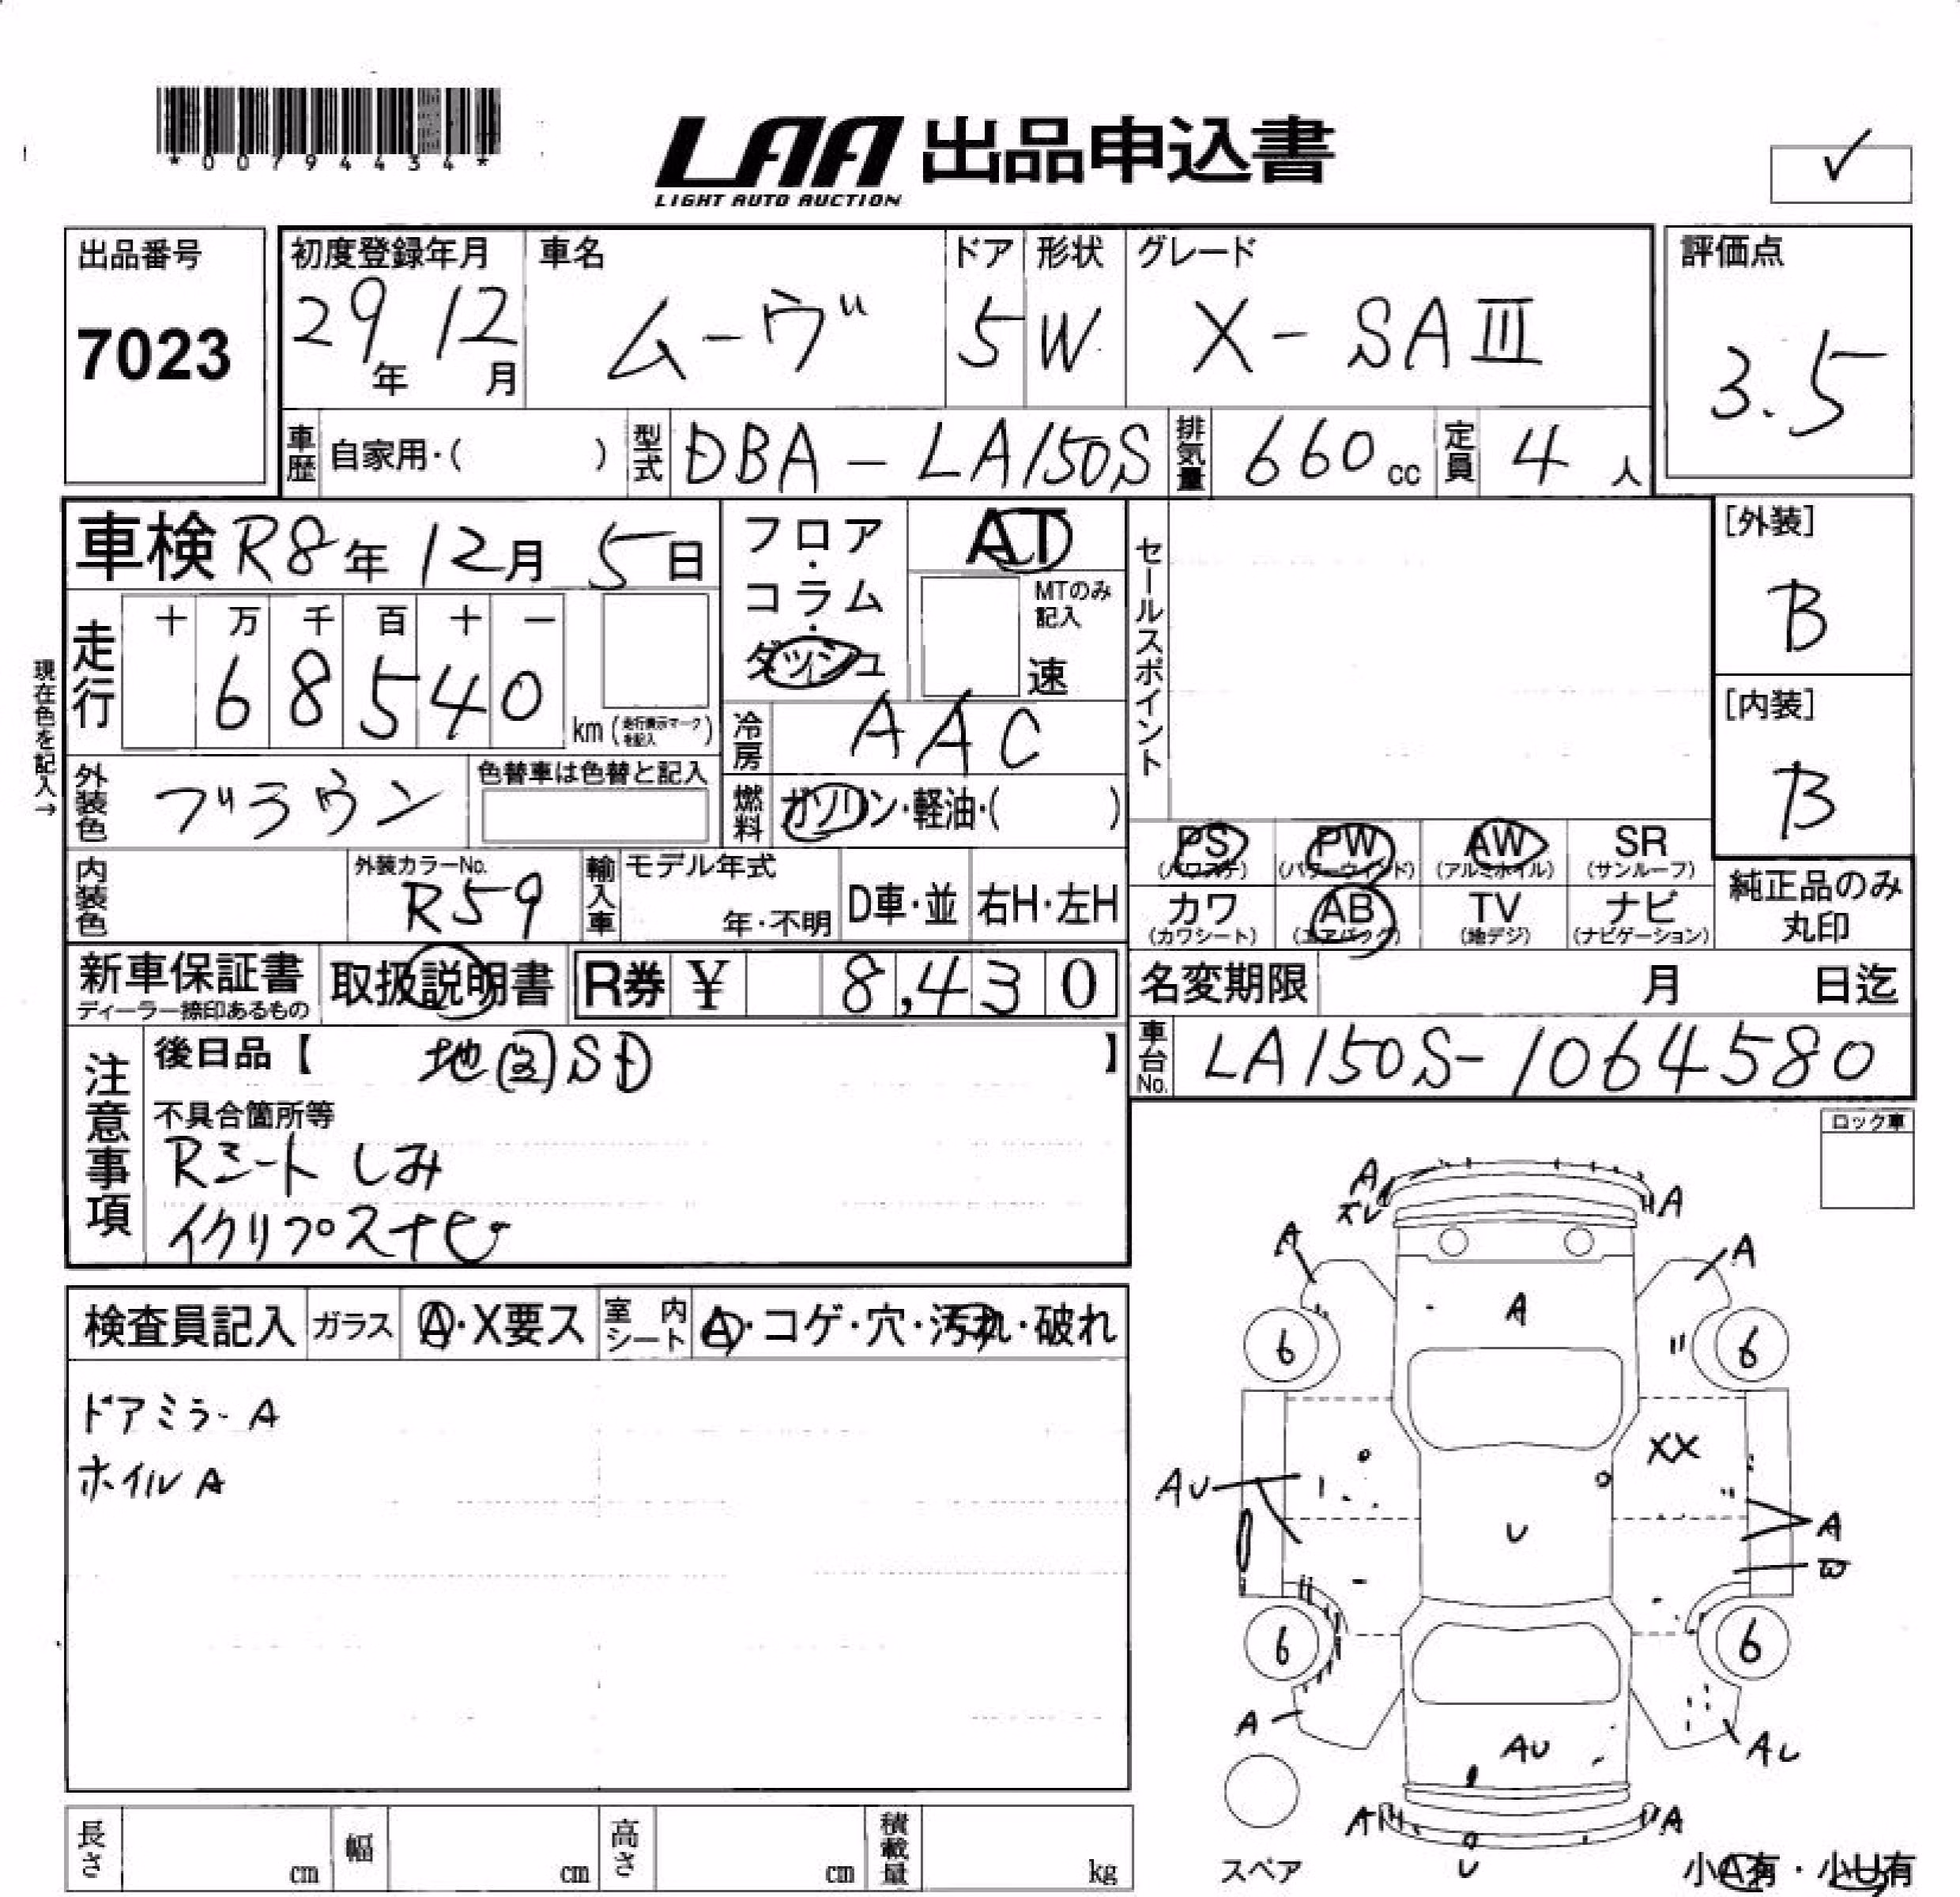 *00794434*
LAA 出品申込書
LIGHT AUTO AUCTION
✓
出品番号
7023
初度登録年月
29年 12月
車名
ムーヴ
ドア
5
形状
W
グレード
X-SAⅢ
評価点
3.5
車歴 自家用・( )
型式 DBA-LA150S
排気量 660cc
定員 4人
車検 R8年 12月 5日
現在色を記入→
走行
十 万 千 百 十 一
6 8 5 4 0
km(走行表示マークを記入)
フロア・コラム・ダッシュ
AT
MTのみ記入
速
冷房 AAC
燃料 ガソリン・軽油・( )
外装色 ブラウン
色替車は色替と記入
内装色
外装カラーNo.
R59
輸入車
モデル年式
年・不明
D車・並
右H・左H
セールスポイント
[外装]
B
[内装]
B
PS (パワステ)
PW (パワーウィンド)
AW (アルミホイル)
SR (サンルーフ)
カワ (カワシート)
AB (エアバック)
TV (地デジ)
ナビ (ナビゲーション)
純正品のみ丸印
新車保証書
ディーラー捺印あるもの
取扱説明書
R券 ¥ 8,430
名変期限 月 日迄
車台No. LA150S-1064580
注意事項
後日品【 地図SD 】
不具合箇所等
Rシートしみ
イクリプスナビ
ロック車
検査員記入
ガラス A・X要ス
室内シート A・コゲ・穴・汚れ・破れ
ドアミラーA
ホイルA
A
ズレ
A
A
A
A
6
6
XX
AU
U
A
W
6
6
A
AU
AU
A
A
U
スペア
小A有・小U有
長さ cm
幅 cm
高さ cm
積載量 kg